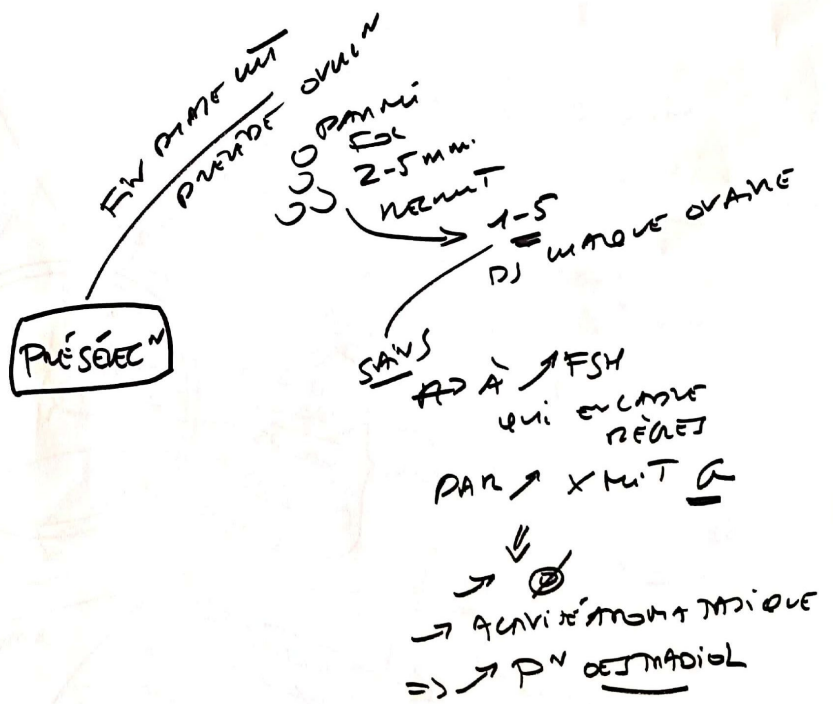 FIN PHASE LUT
PRÉCÈDE OVUL^N
PARMI
FOL
2-5 mm.
RECRUT
1-5
DS CHAQUE OVAIRE
PRÉSÉLEC^N
SAINS
À ↗ FSH
qui ENCADRE
RÈGLES
PAR ↗ X MIT G
⇓
↗ Ø
→ ACTIVITÉ AROMATASIQUE
=> ↗ P^N OESTRADIOL